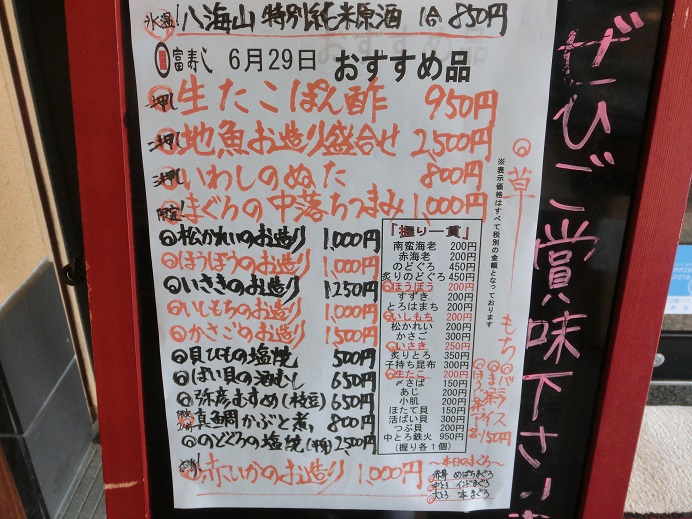 氷温!八海山 特別純米原酒 1合 850円
富寿し 6月29日 おすすめ品
押し 生たこぽん酢 950円
押! 地魚お造り盛合せ 2,500円
押! いわしのぬた 800円
限定! まぐろの中落ちつまみ 1,000円
松かれいのお造り 1,000円
ほうぼうのお造り 1,000円
いさきのお造り 1,250円
いしもちのお造り 1,000円
かさごのお造り 1,500円
貝ひもの塩焼 500円
ばい貝の酒むし 650円
弥彦むすめ(枝豆) 650円
真鯛かぶと煮 800円
のどぐろの塩焼(半身) 2,500円
赤いかのお造り 1,000円
「握り一貫」
南蛮海老 200円
赤海老 200円
のどぐろ 450円
炙りのどぐろ 450円
ほうぼう 200円
すずき 200円
とろはまち 200円
いしもち 200円
松かれい 200円
かさご 300円
いさき 250円
炙りとろ 350円
子持ち昆布 300円
生たこ 200円
〆さば 150円
あじ 200円
小肌 200円
ほたて貝 150円
活ばい貝 300円
つぶ貝 200円
中とろ鉄火 950円
(握り各1個)
~本日のまぐろ~
赤身 めばちまぐろ
中とろ インドまぐろ
大とろ 本まぐろ
※表示価格はすべて税別の金額となっております
草
もち
バニラ
まっ茶
ほうじ茶
アイス
各150円
ぜひご賞味下さい